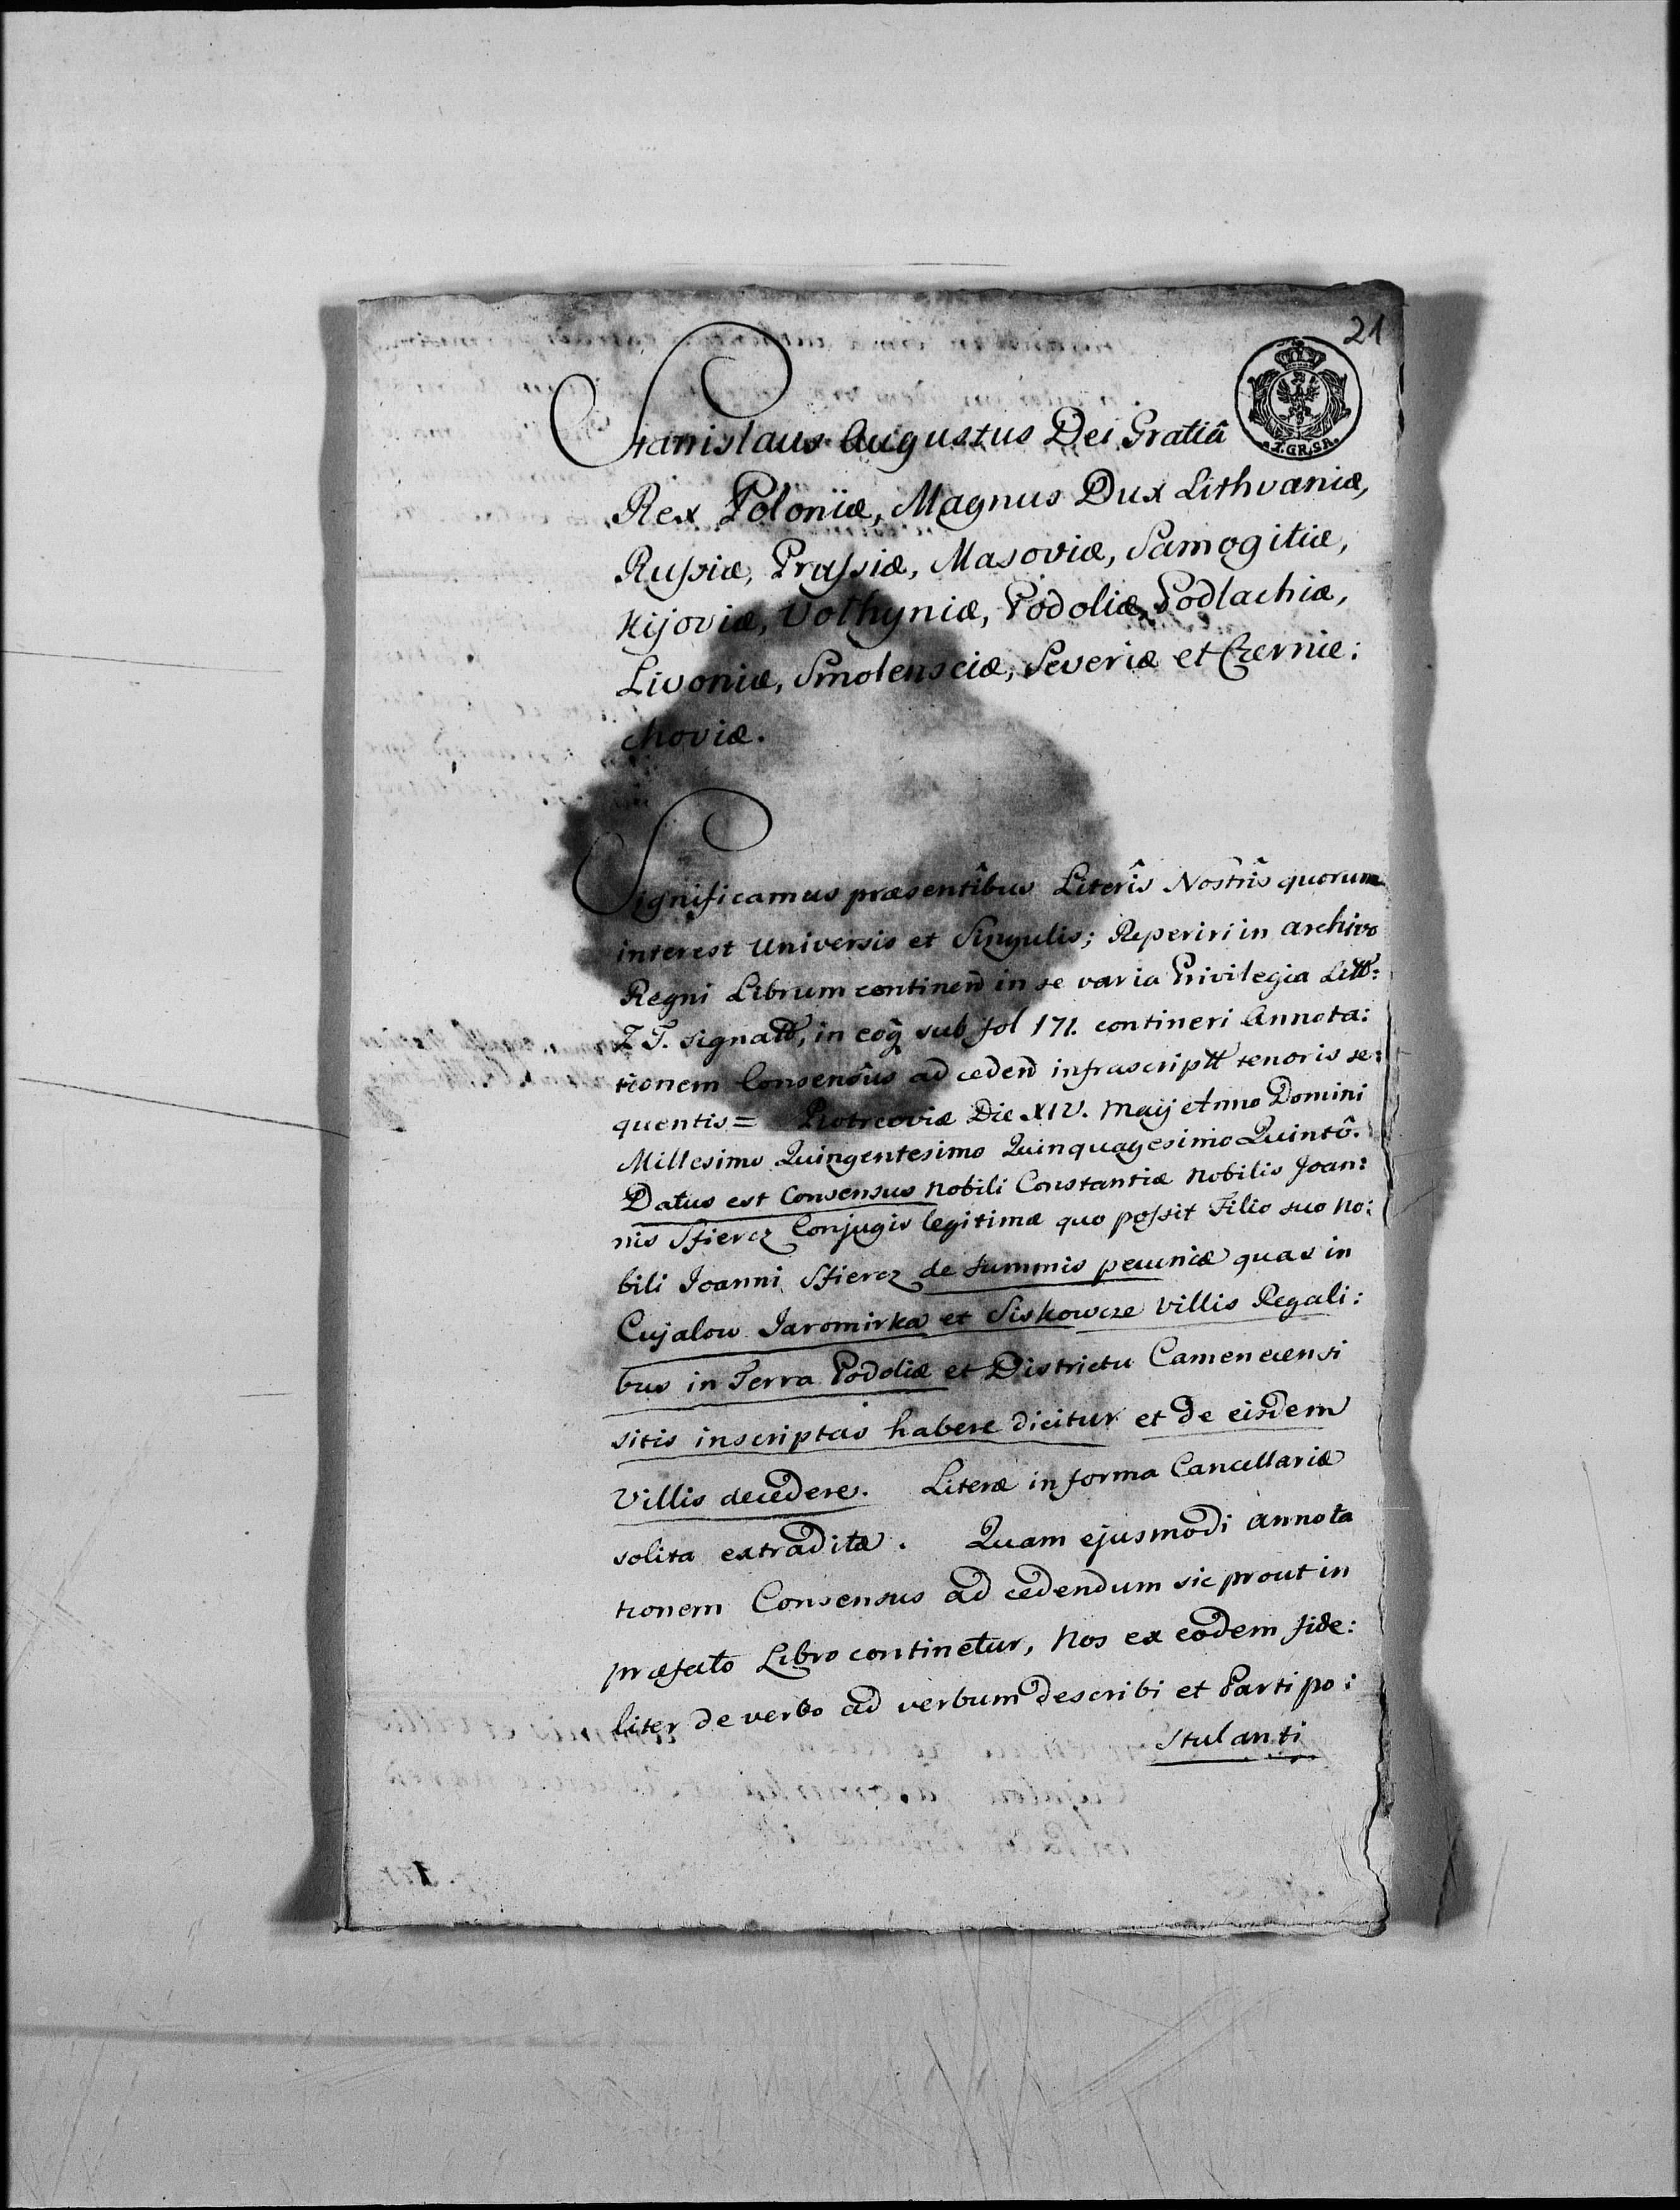 21
Stanislaus Augustus Dei Gratiâ
I.GR.SR.
Rex Poloniæ, Magnus Dux Lithvaniæ,
Russiæ, Prussiæ, Masoviæ, Samogitiæ,
Kijoviæ, Volhyniæ, Podoliæ, Podlachiæ,
Livoniæ, Smolensciæ, Severiæ et Czernie:
choviæ.
Significamus præsentibus Literîs Nostrîs quorum
interest Universis et Singulis; Reperiri in Archivo
Regni Librum continen in se varia Privilegia Litt:
Z T. signatt, in eoq sub fol 171. contineri Annota:
tionem Consensûs ad ceden infrascriptt tenoris se:
quentis = Piotrcoviæ Die XIV. Maij Anno Domini
Millesimo Quingentesimo Quinquagesimo Quintô.
Datus est Consensus Nobili Constantiæ Nobilis Joan:
nis Sfiercz Conjugis legitimæ quo possit Filio suo No:
bili Joanni Sfiercz de summis pecuniæ quas in
Cujalow Jaromirka et Siskowcze Villis Regali:
bus in Terra Podoliæ et Districtu Camenecensi
sitis inscriptas habere dicitur et de eisdem
Villis decedere. Literæ in forma Cancellariæ
solita extraditæ. Quam ejusmodi annota
tionem Consensus ad cedendum sic prout in
præfato Libro continetur, Nos ex eodem fide:
liter de verbo ad verbum describi et Parti po:
stulanti